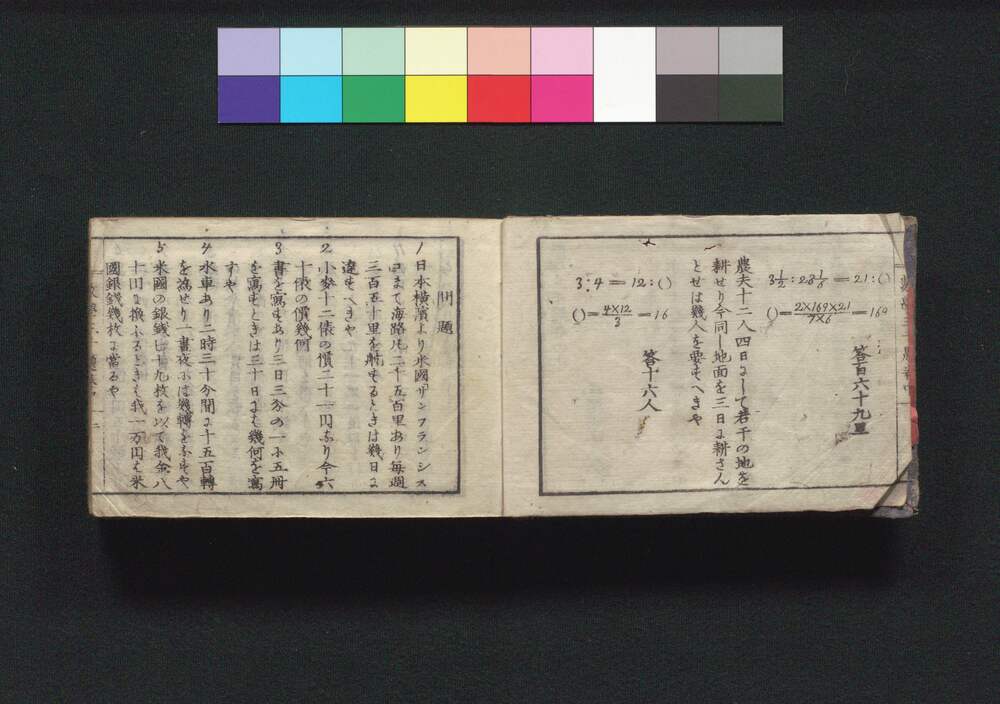 3½:28⅙=21:()
()=2×169×21/7×6=169
答百六十九里
農夫十二人四日にして若干の地を
耕せり今同し地面を三日に耕さん
とせは幾人を要すへきや
3:4=12:()
()=4×12/3=16
答十六人
問題
1 日本横濱より米國サンフランシス
コまて海路凡二千五百里あり毎週
三百五十里を駛するときは幾日に
達すへきや
2 小麥十二俵の價二十一円なり今六
十俵の價幾何
3 書を寫すあり三日三分の一に五冊
を寫すときは三十日には幾何を寫
すや
4 水車あり二時三十分間に十五百轉
を為せり一晝夜には幾轉をなすや
5 米國の銀錢七十九枚を以て我金八
十円に換ふるときは我一万円は米
國銀錢幾枚に當るや